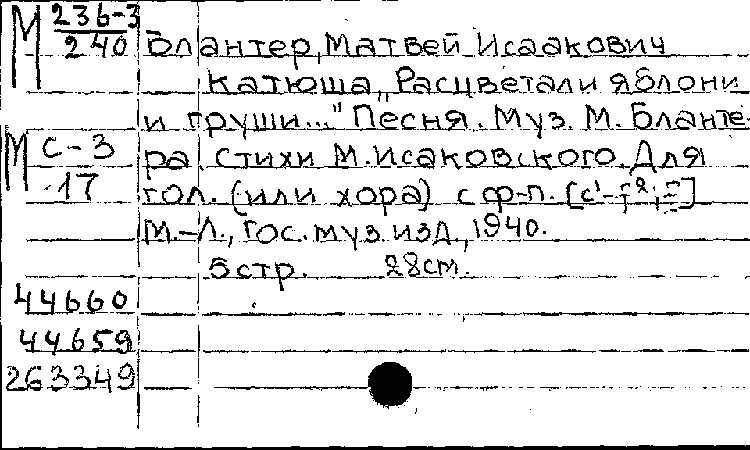 М 236-3
240
Блантер, Матвей Исаакович
Катюша „Расцветали яблони
и груши..." Песня. Муз. М. Бланте-
М С-3
17
ра, стихи М. Исаковского. Для
гол. (или хора) с ф-п.
М.-Л., Гос. муз. изд., 1940.
5 стр. 28 см.
44660
44659
263349